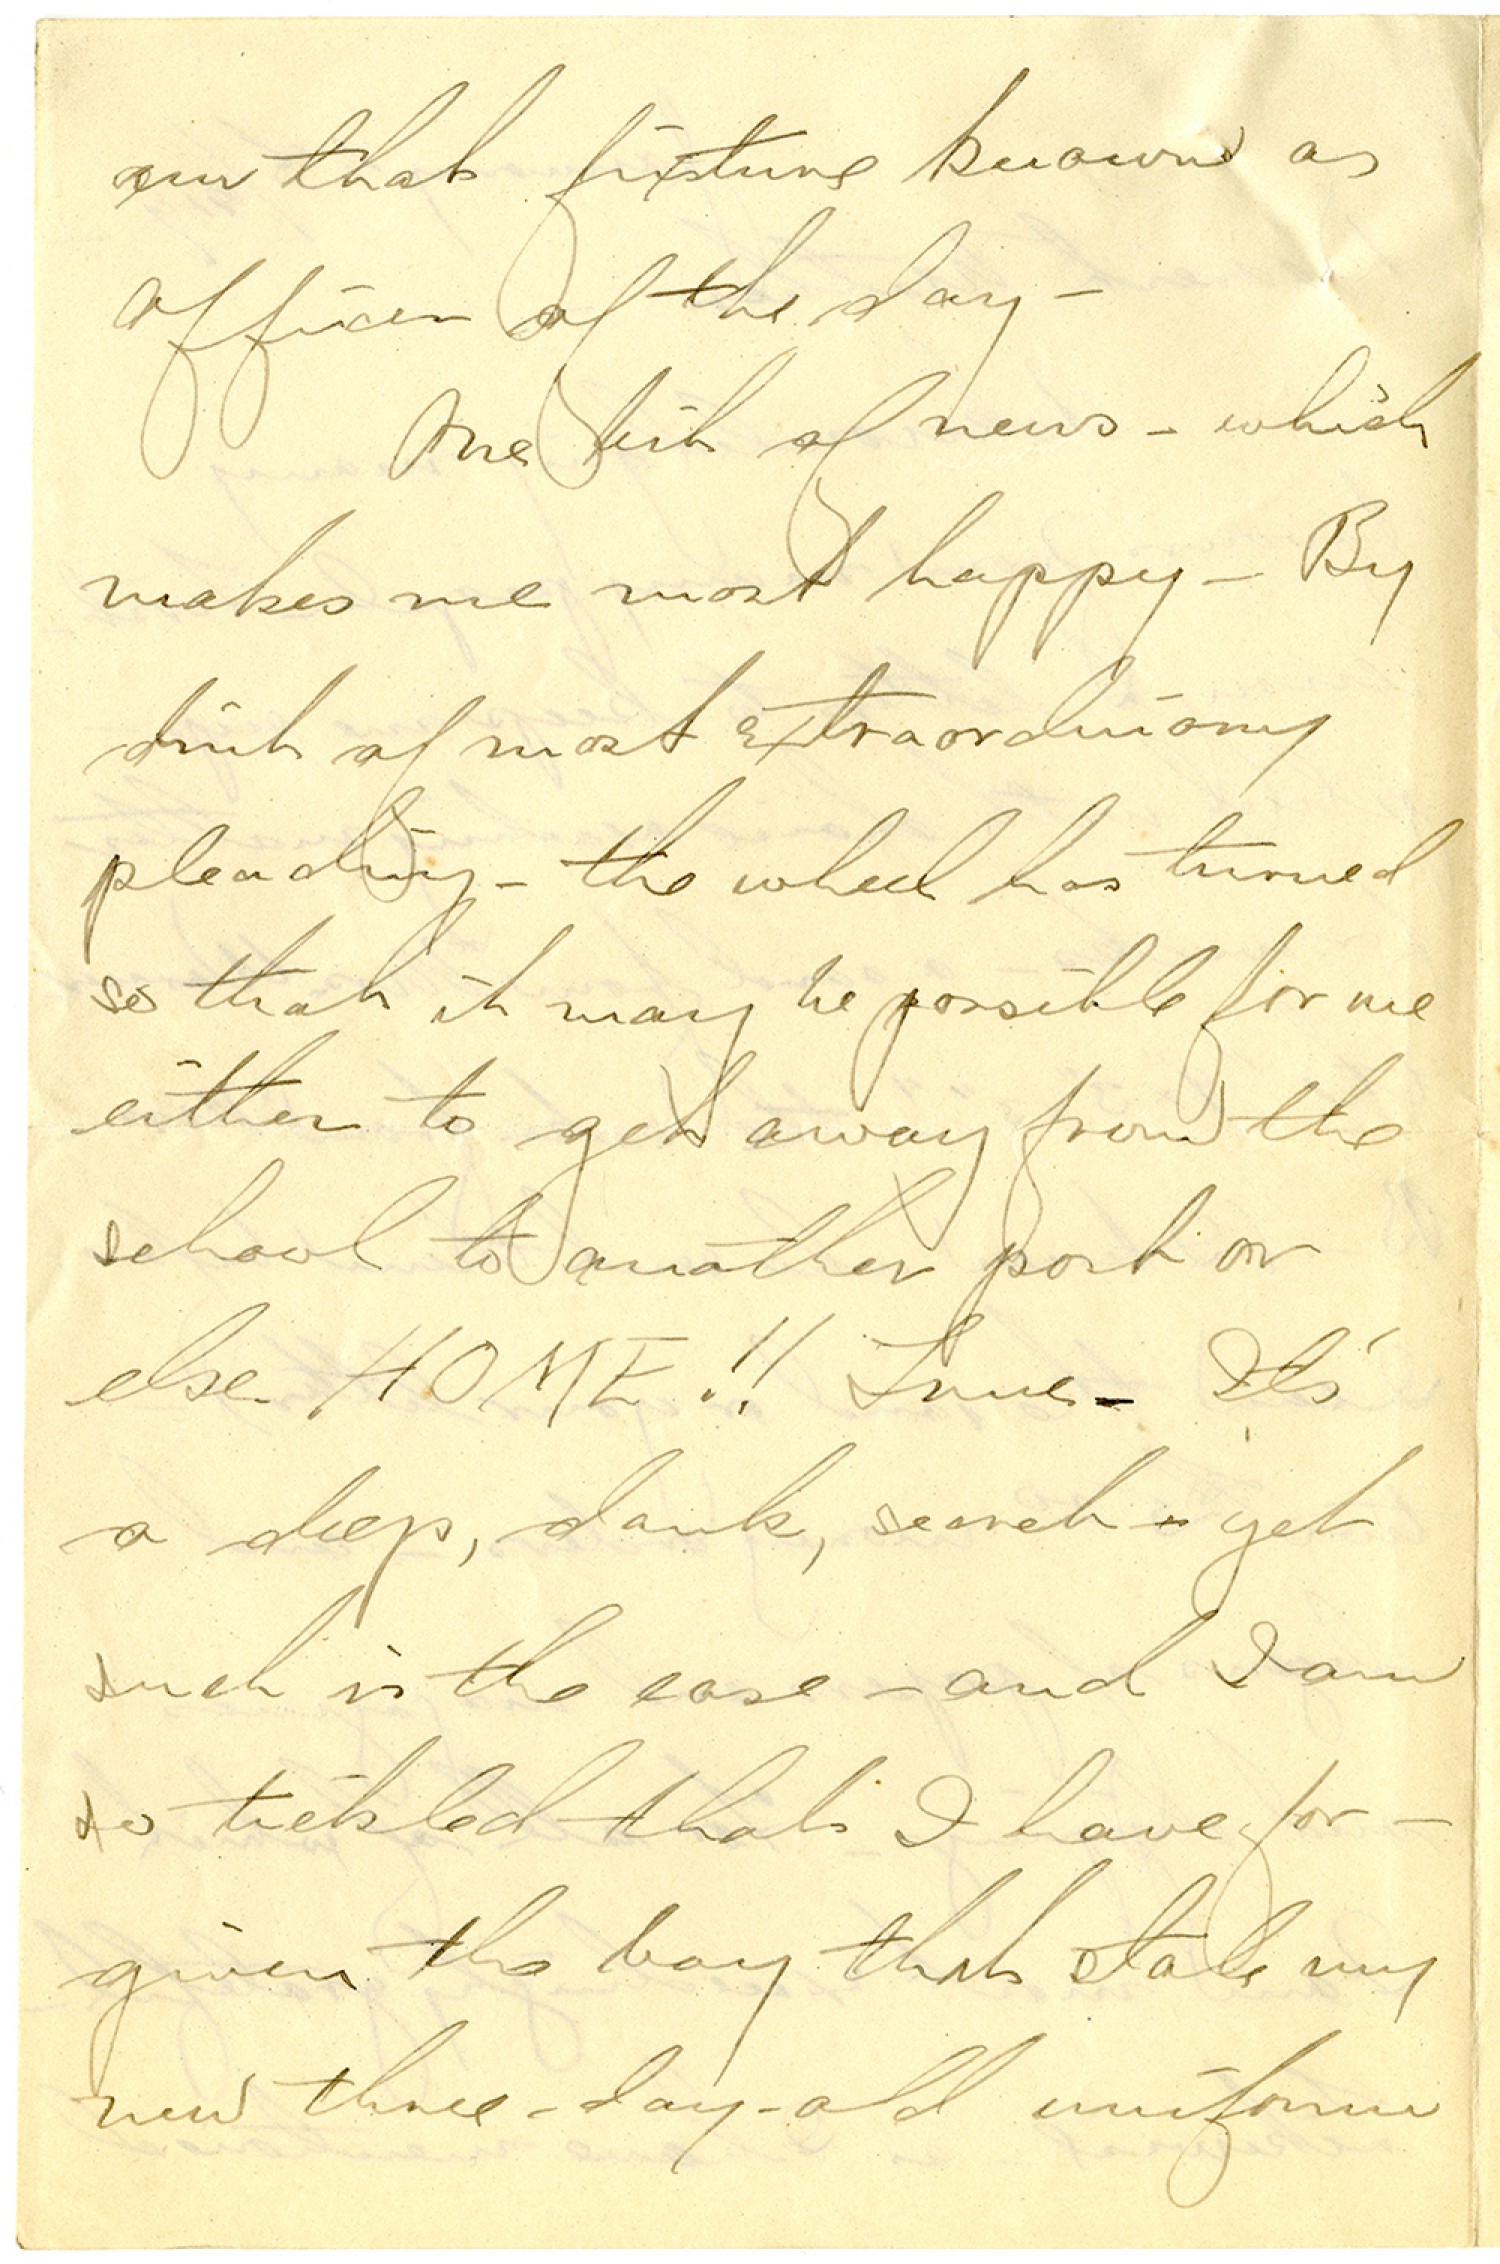 am that fixture known as
officer of the day -
One bit of news - which
makes me most happy - By
dint of most extraordinary
pleading - the wheel has turned
so that it may be possible for me
either to get away from the
school to another post or
else HOME!! True - It's
a deep, dark, secret - yet
such is the case - and I am
so tickled that I have for -
given the boy that stole my
new three-day-old uniform